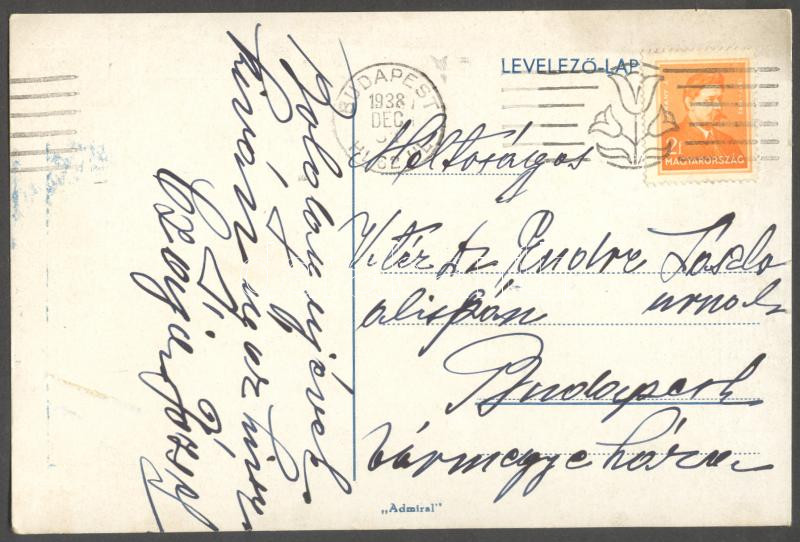 LEVELEZŐ-LAP
BUDAPEST
1938
DEC
62
MAGYARORSZÁG
Méltóságos
Vitéz Dr Endre László
alispán urnak
Budapest
Vármegye háza
Boldog ujévet
kiván igaz hive
József
„Admiral”